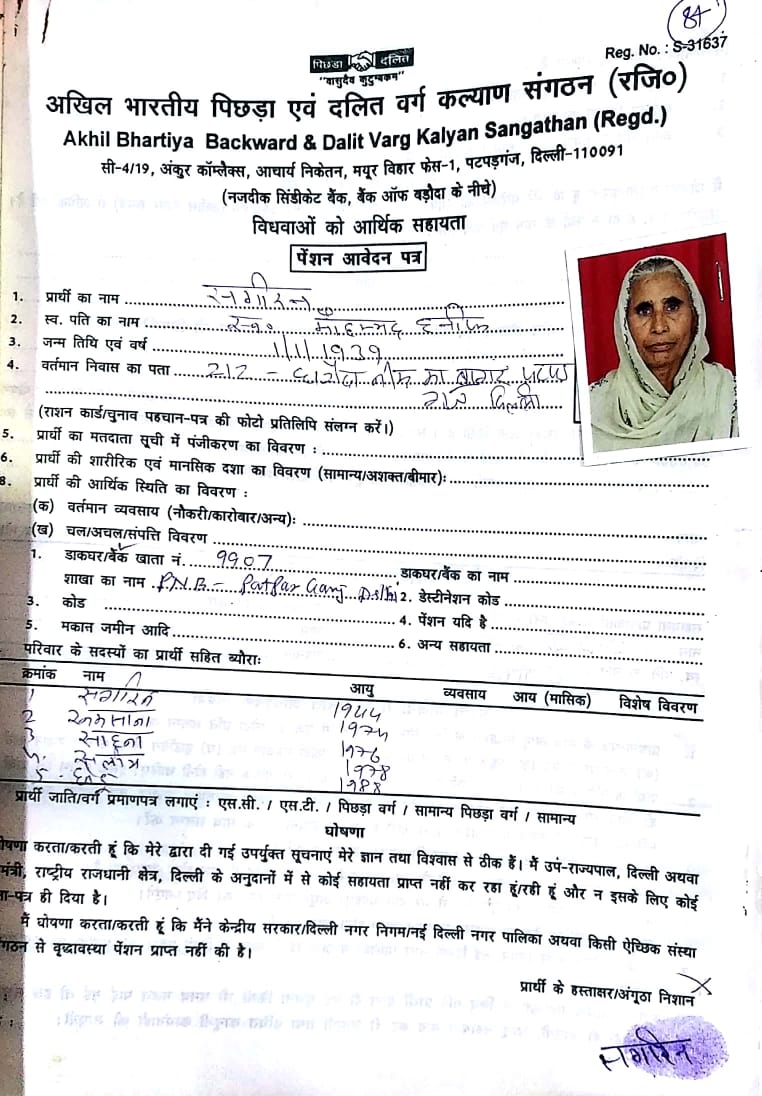 84
Reg. No. : S-31637
पिछड़ा दलित
"वासुदेव कुटुम्बकम"
अखिल भारतीय पिछड़ा एवं दलित वर्ग कल्याण संगठन (रजि०)
Akhil Bhartiya Backward & Dalit Varg Kalyan Sangathan (Regd.)
सी-4/19, अंकुर कॉम्लैक्स, आचार्य निकेतन, मयूर विहार फेस-1, पटपड़गंज, दिल्ली-110091
(नजदीक सिंडीकेट बैंक, बैंक ऑफ बड़ौदा के नीचे)
विधवाओं को आर्थिक सहायता
पेंशन आवेदन पत्र
1. प्रार्थी का नाम सगीरन
2. स्व. पति का नाम स्व० मौहम्मद हनीफ
3. जन्म तिथि एवं वर्ष 1/1/1939
4. वर्तमान निवास का पता 212 -
दिल्ली
(राशन कार्ड/चुनाव पहचान-पत्र की फोटो प्रतिलिपि संलग्न करें।)
5. प्रार्थी का मतदाता सूची में पंजीकरण का विवरण :
6. प्रार्थी की शारीरिक एवं मानसिक दशा का विवरण (सामान्य/अशक्त/बीमार):
8. प्रार्थी की आर्थिक स्थिति का विवरण :
(क) वर्तमान व्यवसाय (नौकरी/कारोबार/अन्य):
(ख) चल/अचल/संपत्ति विवरण
1. डाकघर/बैंक खाता नं. 9907 डाकघर/बैंक का नाम
शाखा का नाम P.N.B - Patpar Ganj Delhi 2. डेस्टीनेशन कोड
3. कोड 4. पेंशन यदि है
5. मकात जमीन आदि 6. अन्य सहायता
परिवार के सदस्यों का प्रार्थी सहित ब्यौराः
क्रमांक नाम आयु व्यवसाय आय (मासिक) विशेष विवरण
1 सगीरन 1944
2
3 1976
4. 1978
5 1988
प्रार्थी जाति/वर्ग प्रमाणपत्र लगाएं : एस.सी. / एस.टी. / पिछड़ा वर्ग / सामान्य पिछड़ा वर्ग / सामान्य
घोषणा
षणा करता/करती हूं कि मेरे द्वारा दी गई उपर्युक्त सूचनाएं मेरे ज्ञान तथा विश्वास से ठीक हैं। मैं उप-राज्यपाल, दिल्ली अथवा
मंत्री, राष्ट्रीय राजधानी क्षेत्र, दिल्ली के अनुदानों में से कोई सहायता प्राप्त नहीं कर रहा हूं/रही हूं और न इसके लिए कोई
ना-पत्र ही दिया है।
मैं घोषणा करता/करती हूं कि मैंने केन्द्रीय सरकार/दिल्ली नगर निगम/नई दिल्ली नगर पालिका अथवा किसी ऐच्छिक संस्था
गठन से वृध्दावस्था पेंशन प्राप्त नहीं की है।
प्रार्थी के हस्ताक्षर/अंगूठा निशान
सगीरन